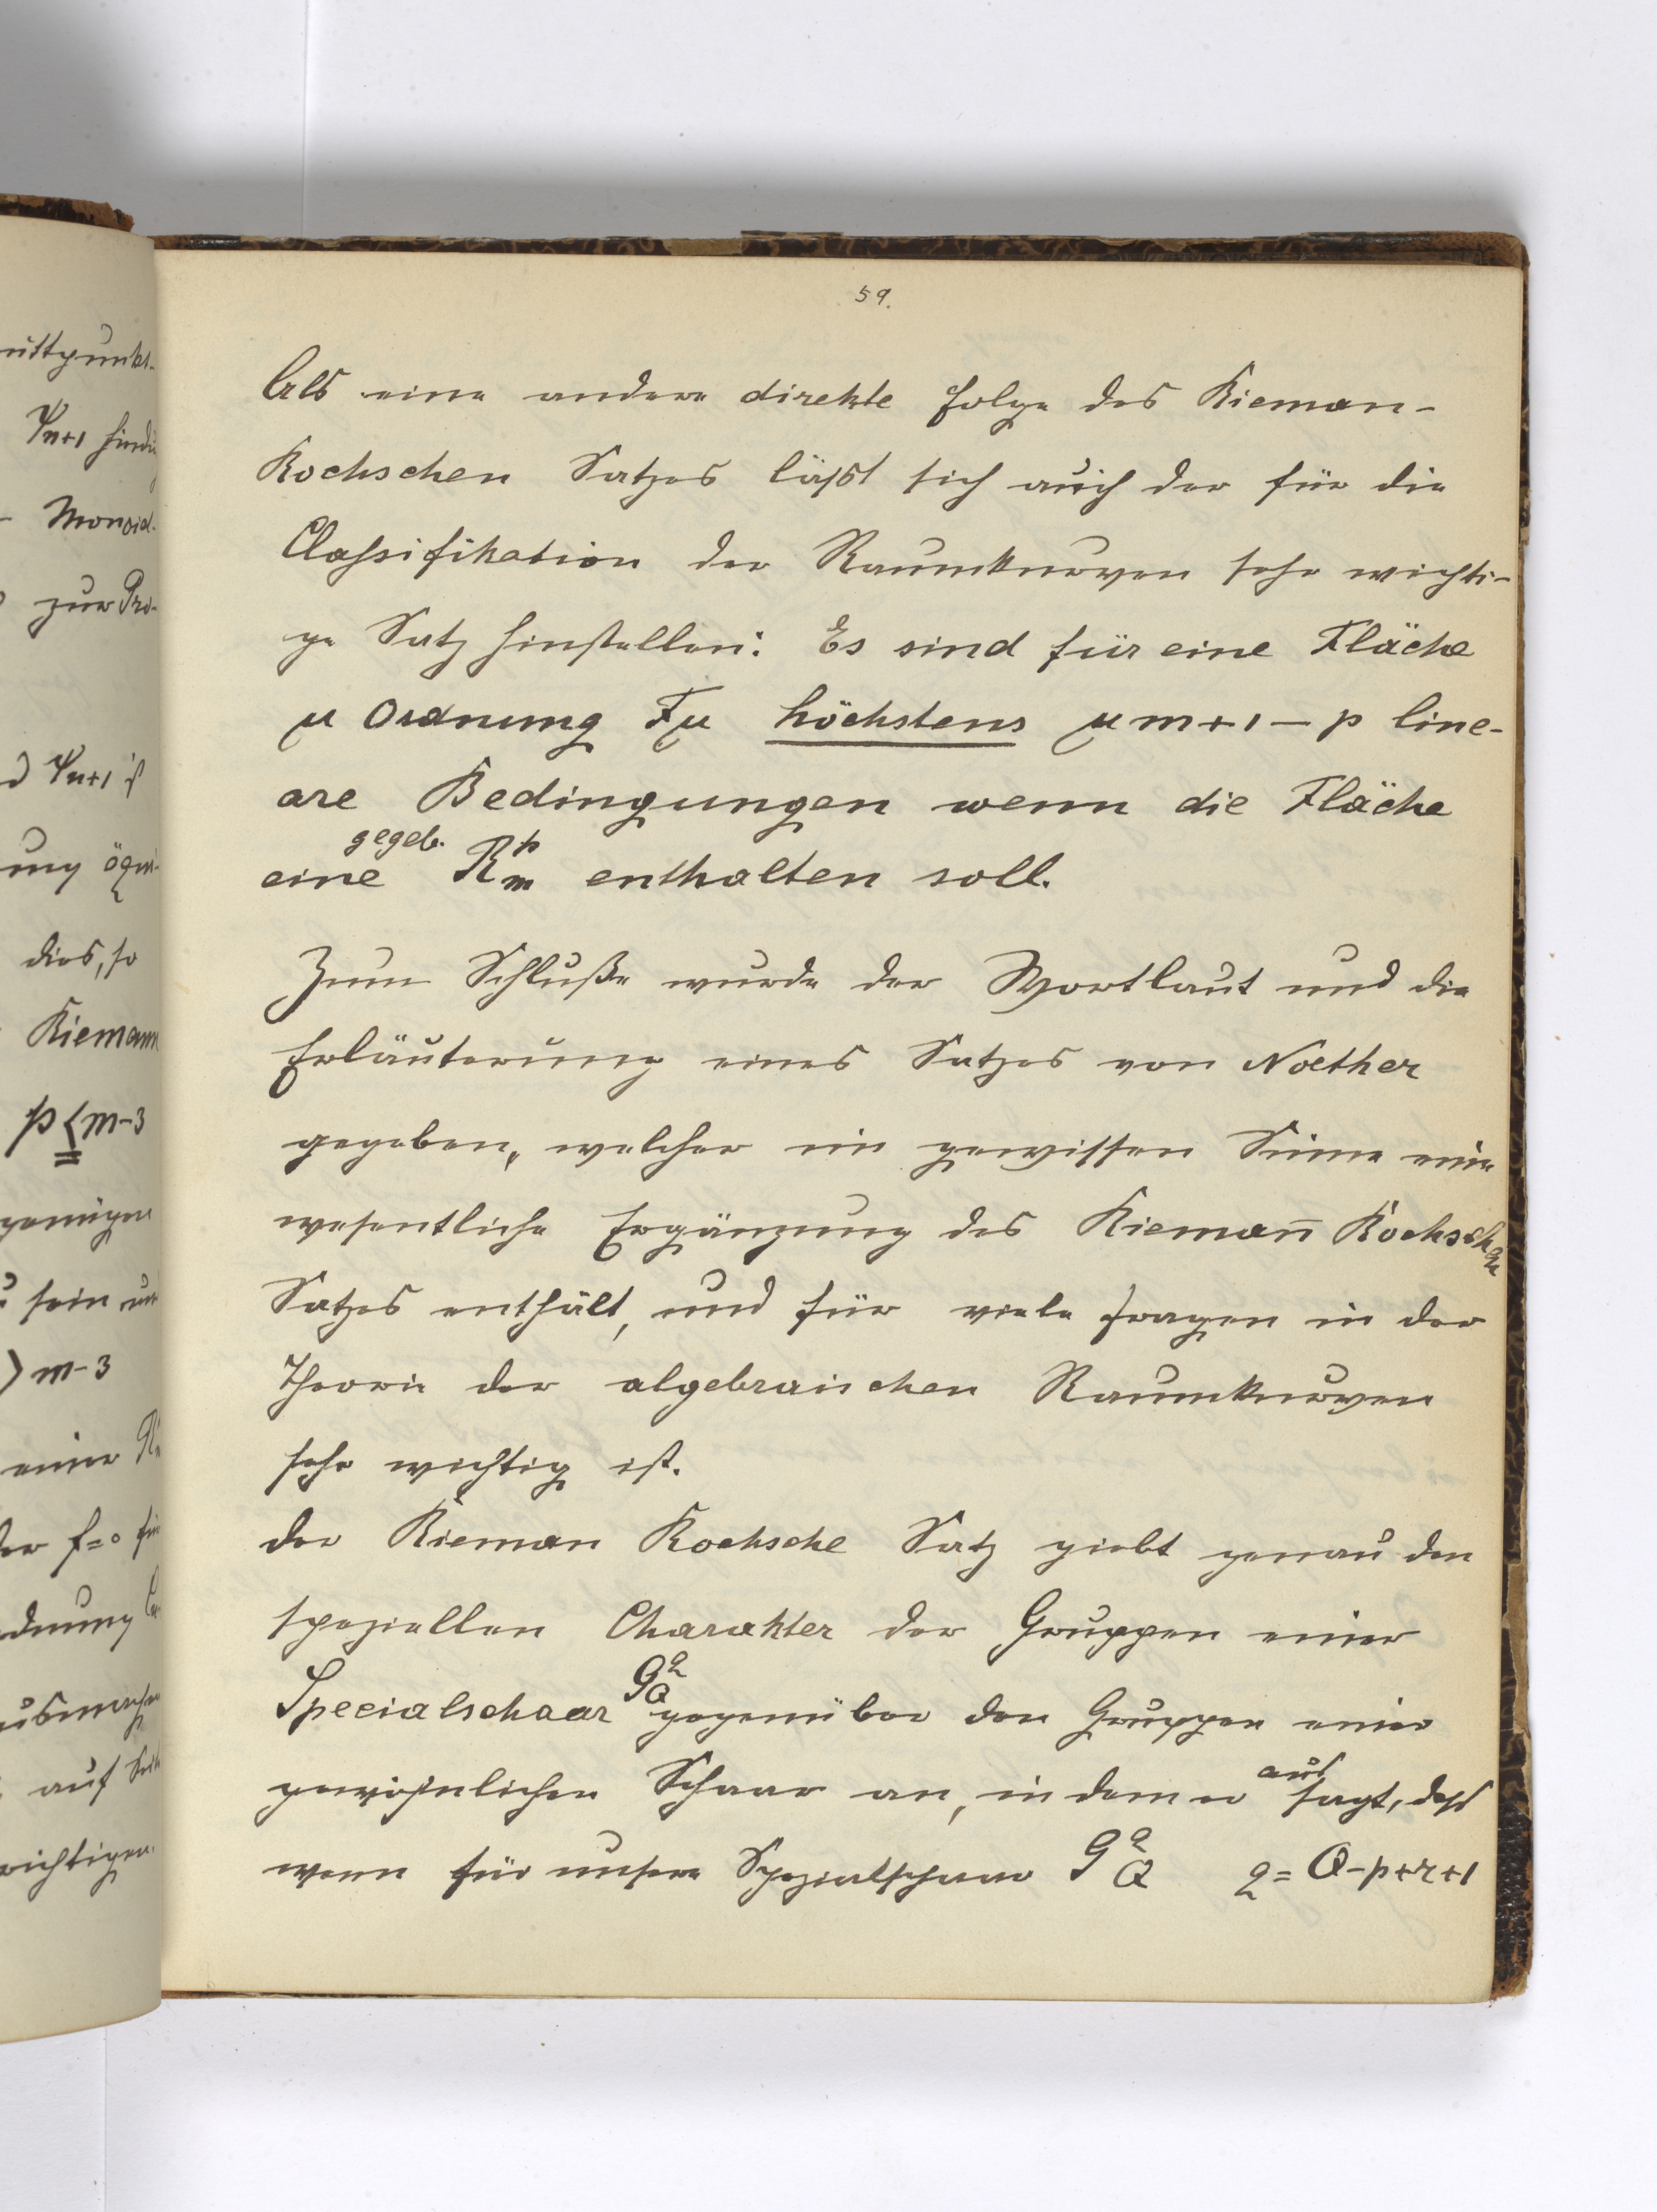 59.
Als eine andere direkte Folge des Rieman-
Rochschen Satzes läßt sich auch der für die
Classifikation der Raumkurven sehr wichti-
ge Satz hinstellen: Es sind für eine Fläche
μ Ordnung Fμ höchstens μm+1-p line-
are Bedingungen wenn die Fläche
gegeb.
eine R^p_m enthalten soll.
Zum Schluße wurde der Wortlaut und die
Erläuterung eines Satzes von Noether
gegeben, welcher im gewissen Sinne eine
wesentliche Ergänzung des Riemañ Rochschen
Satzes enthält, und für viele Fragen in der
Theorie der algebraischen Raumkurven
sehr wichtig ist.
der Rieman Rochsche Satz giebt genau den
speziellen Charakter der Gruppen einer
Specialschaar G^q_Q gegenüber den Gruppen einer
gewöhnlichen Schaar an, indem er aussagt, daß
wenn für unsere Spezialschaar G^q_Q q=Q-p+r+1
ittpunkt-
ψn+1
Monoid-
zur Pro-
ψn+1 ist
ung äqui-
dies, so
Riemann
p≦m-3
sein
>m-3
einer
der f=0 für
dnung
auf
wichtigen